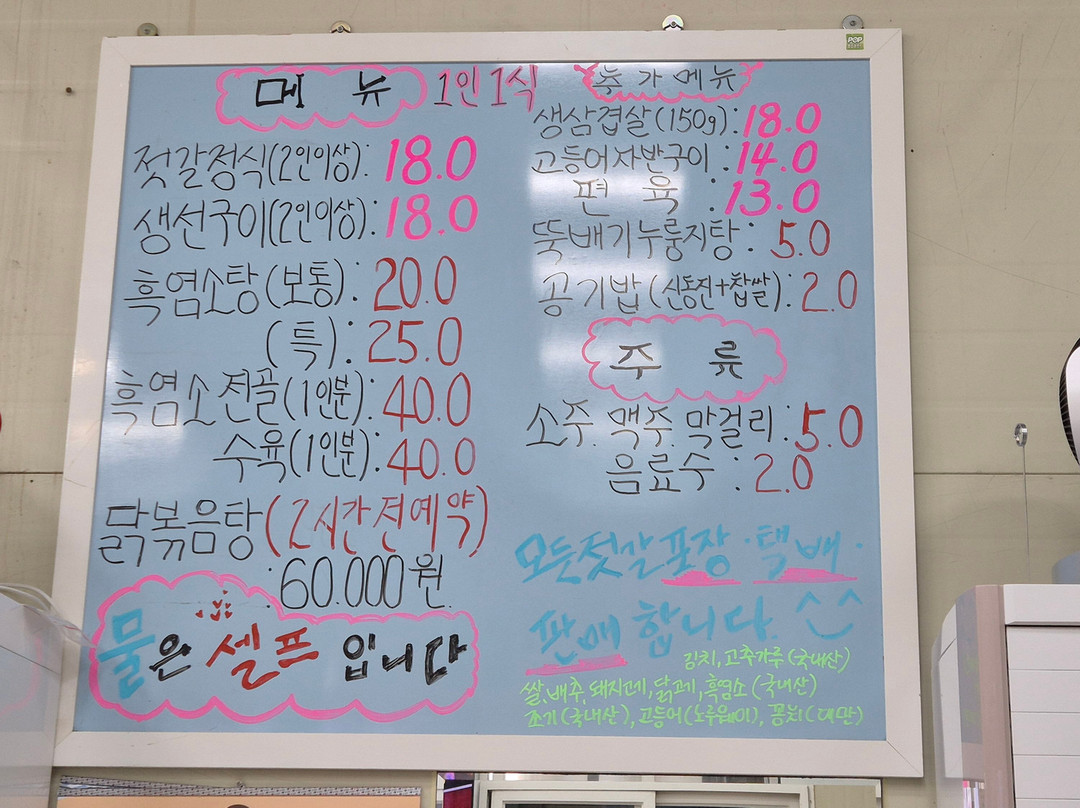 메뉴 1인 1식
젓갈정식(2인이상): 18.0
생선구이(2인이상): 18.0
흑염소탕(보통): 20.0
(특): 25.0
흑염소전골(1인분): 40.0
수육(1인분): 40.0
닭볶음탕(2시간전예약)
: 60.000원.
물은 셀프 입니다
추가메뉴
생삼겹살(150g): 18.0
고등어자반구이: 14.0
편육: 13.0
뚝배기누룽지탕: 5.0
공기밥(신동진+찹쌀): 2.0
주류
소주. 맥주. 막걸리: 5.0
음료수: 2.0
모든젓갈포장·택배·
판매합니다. ^‿^
김치, 고추가루(국내산)
쌀,배추, 돼지고기, 닭고기, 흑염소(국내산)
조기(국내산), 고등어(노르웨이), 꽁치(대만)
POP